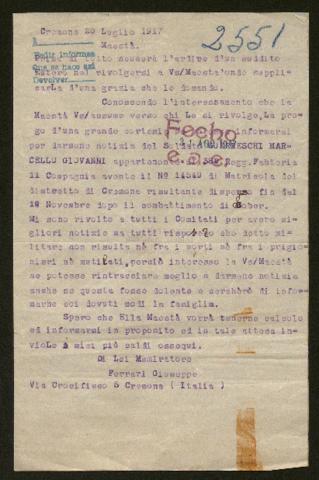 Cremona 20 Luglio 1917
2551
Maestà.
Pedir informes
que se hace así
Devolver
Prima di tutto scuserà l'ardire d'un suddito
Estero nel rivolgersi a Vs/Maesta'onde suppli-
carLa d'una grazia che le domando.
Conoscendo l'interessamento che la
Maestà Vs/assume verso chi Le si rivolge, La pre-
go d'una grande cortesia informarsi
per darmene notizia del MAR-
CELLO GIOVANNI appartenente Regg. Fanteria
Fecho
e.a.c.
11 Compagnia avente il Nº 11549 di Matricola del
distretto di Cremona risultante disperso fin dal
19 Novembre dopo il combattimento di
Mi sono rivolto a tutti i Comitati per avere mi-
gliori notizie ma tutti risposero che detto mi-
litare non risulta nè fra i morti nè fra i prigio-
nieri nè malati, perciò interesso la Vs/Maestà
se potesse rintracciare meglio e darmene notizia
anche se questa fosse dolente e cercherò di infor-
marne coi dovuti modi la famiglia.
Spero che Ella Maestà vorrà tenerne calcolo
ed informarsi in proposito ed in tale attesa in-
vioLe i miei più saldi ossequi.
Di Lei Ammiratore
Ferrari Giuseppe
Via Crocifisso 5 Cremona ( Italia )